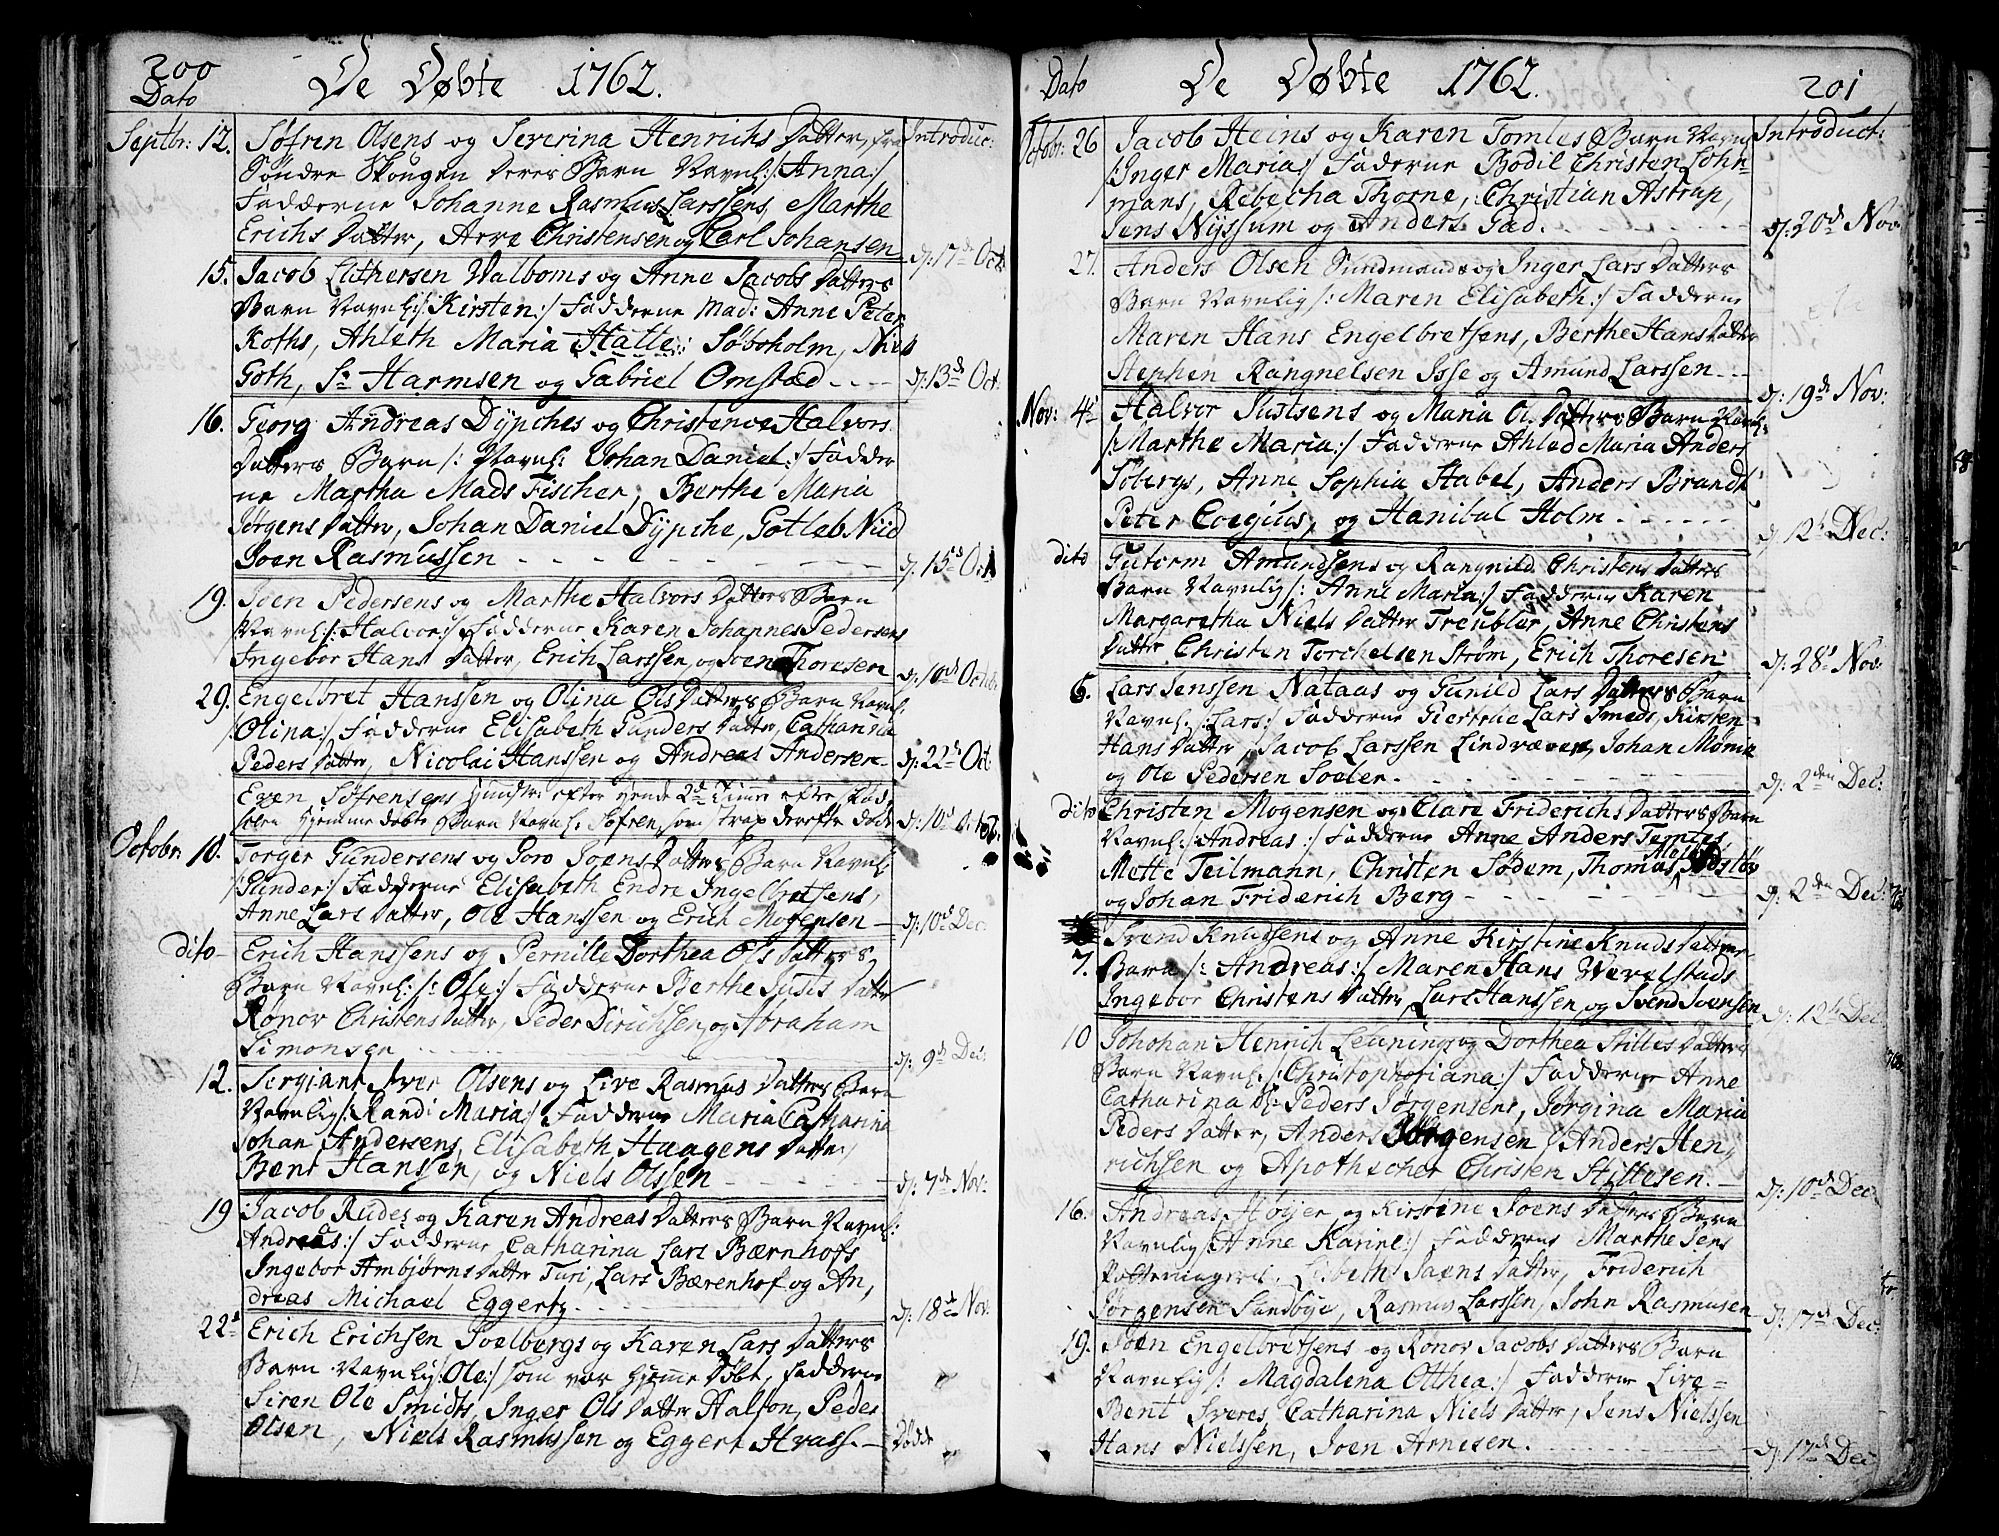 200
De Døbte 1762.
Dato
Introduc:
Septbr: 12. Søfren Olsens og Severina Henrichs Datter, fra
Søndre Skougen Deres Barn Navnl:/:Anna:/
Fadderne Johanne Rasmus Larssens, Marthe
Erichs Datter, Arve Christensen og Carl Johansen
d: 17de Oct:
15. Jacob Luthersen Walboms og Anne Jacobs Datters
Barn Navnl:/:Kirsten:/ Fadderne Mad: Anne Peter
Koths, Ahleth Maria Halle: Søboholm, Niels
Goth, Sr Harmsen og Gabriel Omstæd
d: 13de Oct.
16. Georg Andreas Dÿpches og Christence Halvors
Datters Barn /: Navnl: Johan Daniel:/ Fadder
ne Martha Mads Fischer, Berthe Maria
Jørgens Datter, Johan Daniel Dÿpche, Gotleb Niid
Joen Rasmussen
d: 15de Oct
19. Joen Pedersens og Marthe Halvors Datters Barn
Navnl:/:Halvor:/ Fadderne Karen Johannes Pedersens
Ingebor Hans Datter, Erich Larssen, og Joen Thoresen
d: 10de Octob:
29. Engelbret Hanssen og Olina Ols Datters Barn Navnl:
/Olina:/ Fadderne Elisabeth Gunders Datter, Catharina
Peders Datter, Nicolai Hanssen og Andreas Andersen
d: 22de Oct:
Even Søfrensens Hustr: efter hende 2de Tiime efter fød
selen Hjemme døbte Barn Navnl: Søfren, som strax derefter døde
d: 10de Octob.
Octobr: 10. Torger Gundersens og Goro Joens Datters Barn Navnl:
/Gunder:/ Fadderne Elisabeth Endre Ingelbretsens,
Anne Lars Datter, Ole Hanssen og Erich Mogensen
d: 10de Dec:
dito Erich Hanssens og Pernille Dorthea Ols Datters
Barn Navnl: /: Ole:/ Fadderne Berthe Justs Datter
Ronov Christens Datter, Peder Dirichsen, og Abraham
Simonsen
d: 9de Dec:
12. Sergiant Iver Olsens og Live Rasmus Datters Barn
Navnlig/:Randi Maria:/ Fadderne Maria Catharina
Johan Andersens, Elisabeth Haagens Datter,
Bent Hanssen, og Niels Olssen
d: 7de Nov:
19 Jacob Rudes og Karen Andreas Datters Barn Navnl:
Andreas:/ Fadderne Catharina Lars Bærnhofs
Ingebor Ambjørns Datter Turi, Lars Bærenhof og An,
dreas Michael Eggertz
d: 18de Nov:
22de Erich Erichsen Soelbergs og Karen Lars Datters
Barn Navnlig/:Ole:/ som var Hjemme Døbt, Fadderne
Siren Ole Smidts, Inger Ols Datter Aalson, Peder
Olsen, Niels Rasmussen og Eggert Hvass.
Døde
Dato
De Døbte 1762.
201
Introduct:
Octobr: 26 Jacob Heins og Karen Tomles Barn Navnl
/:Inger Maria:/ Fadderne Bodil Christen John-
mans, Rebecha Thorne, Christian Astrup,
Jens Nÿssum og Anders Gad.
d: 20de Nov.
27. Anders Olsen Sundmands og Inger Lars Datters
Barn Navnlig/:Maren Elisabeth:/ Fadderne
Maren Hans Engelbretsens, Berthe Hans Datter
Stephen Rangnelsen Isse og Amund Larssen
d: 19de Nov:
Nov: 4de Halvor Justsens og Maria O. Datters Barn Navnl:
/:Marthe Maria:/ Fadderne Ahled Maria Anders
Søbergs, Anne Sophia Stabel, Anders Brandt
Peter Coegius, og Hanibal Holm
d: 12de Dec:
dito Gutorm Amundsens og Rangnild Christens Datters
Barn Navnlig/: Anne Maria:/ Fadderne Karen
Margaretha Niels Datter Treubler, Anne Christens
Datter, Christen Torchelsen Strøm, Erich Thoresen
d: 28de Nov:
6. Lars Jenssen Nataas og Gunild Lars Datters Barn
Navnl:/:Lars:/ Fadderne Giertrue Lars Smeds, Kirsten
Hans Datter, Jacob Larssen Lindvæver, Johan Mønni
og Ole Pedersen Soeler
d: 2den Dec:
dito Christen Mogensen og Clare Friderichs Datters Barn
Navnl:/:Andreas:/ Fadderne Anne Anders Tomles,
Mette Teilmann, Christen Sødem, Thomas
og Johan Friderich Berg
d: 2den Dec:
7. Svend Knussens og Anne Kirstine Knuds Datters
Barn/: Andreas:/ Maren Hans Wevelstads
Ingebor Christens Datter, Lars Hanssen, og Svend Svensen
d: 12de Dec.
10 Johohan Henrich Leunings og Dorthea Stilles Datters
Barn Navnl:/:Christophoriana:/ Fadderne Anne
Catharina Peders Jørgensens, Jørgina Maria
Peders Datter, Anders Jørgensen, Anders Hen,
richsen og Apothecher Christen Stillesen.
d: 10de Dec.
16. Andreas Høÿer og Kirstine Joens Datters Barn
Navnlig/:Anne Karine:/ Fadderne Marthe Jens
Lisbeth Joens Datter, Friderich
Jørgensen Sandbÿe, Rasmus Larssen, John Rasmusen
d: 17de Dec:
19. Joen Engelbretsens og Ronov Jacobs Datters Barn
Navnlig/: Magdalena Otthea:/ Fadderne Live
Bent Sveres, Catharina Niels Datter, Jens Nielssen
Hans Nielssen, Joen Arnesen.
d: 17de Dec